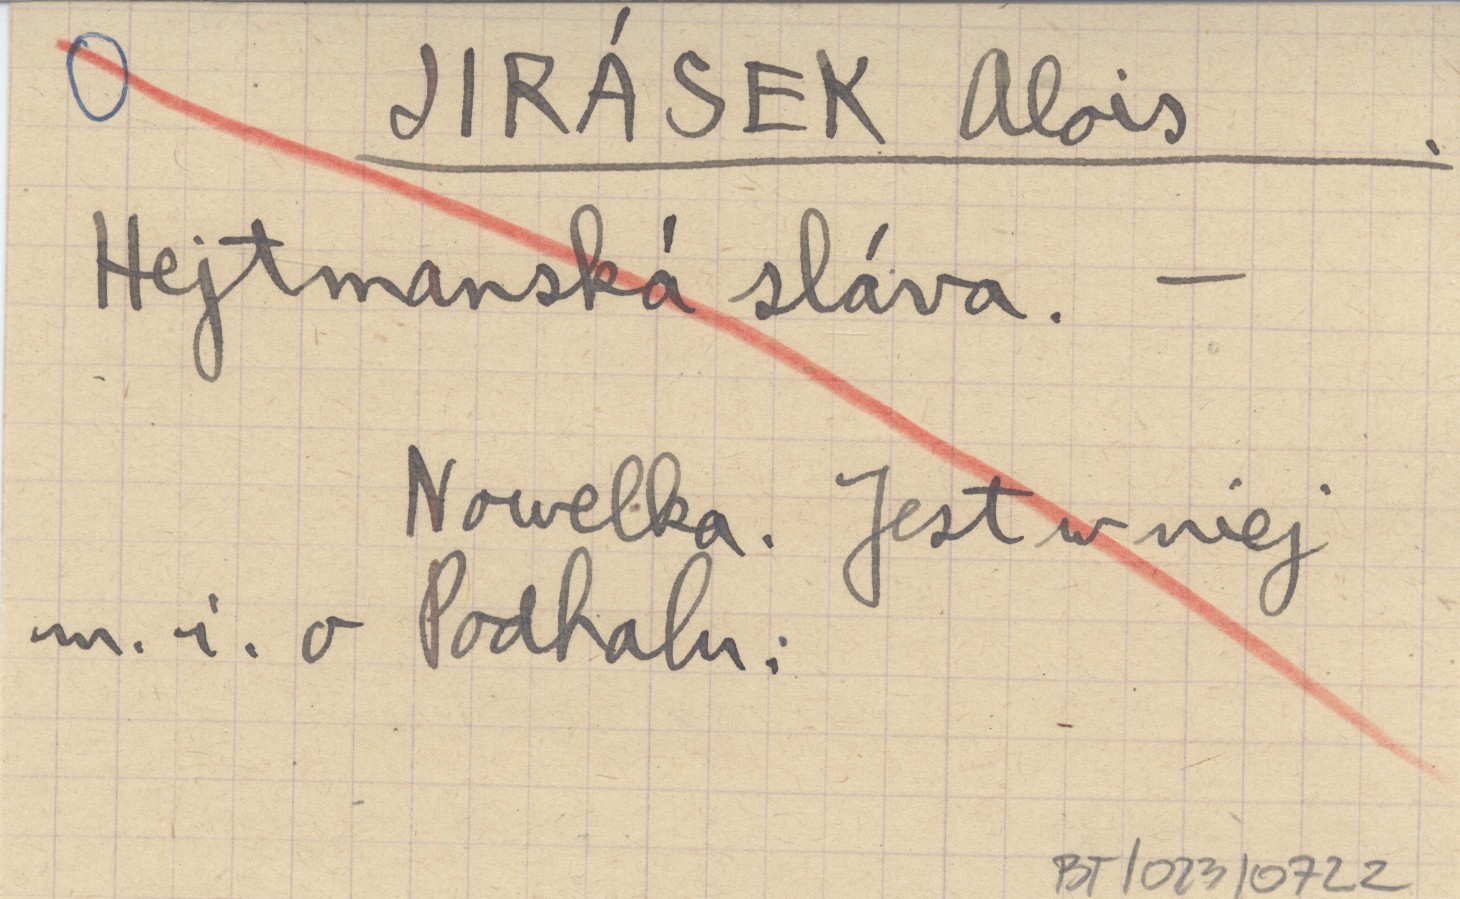 JIRÁSEK Alois .
Hejtmanská sláva. —
Nowelka. Jest w niej
m. i. o Podhalu:
BT/023/0722